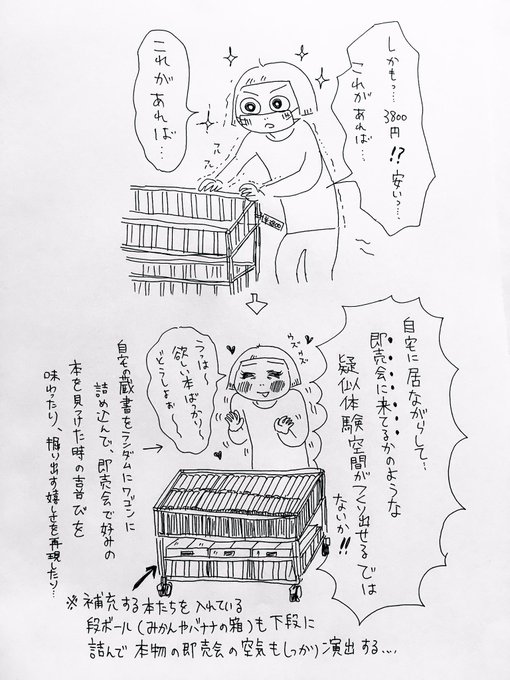 しかもっ…
3800円!?
安いっ…
これが
あれば…
これが
あれば…
¥3800
自宅に居ながらして…
即売会に来てるかのような
疑似体験空間がつくり出せるでは
ないか!!
ウズウズ
うっは〜
欲しい本ばっかり〜
どうしよぉ〜
自宅の蔵書をランダムにワゴンに
詰め込んで、即売会で好みの
本を見つけた時の喜びを
味わったり、掘り出す嬉しさを再現したり…
※補充する本たちを入れている
段ボール(みかんやバナナの箱)も下段に
詰んで本物の即売会の空気もしっかり演出する…